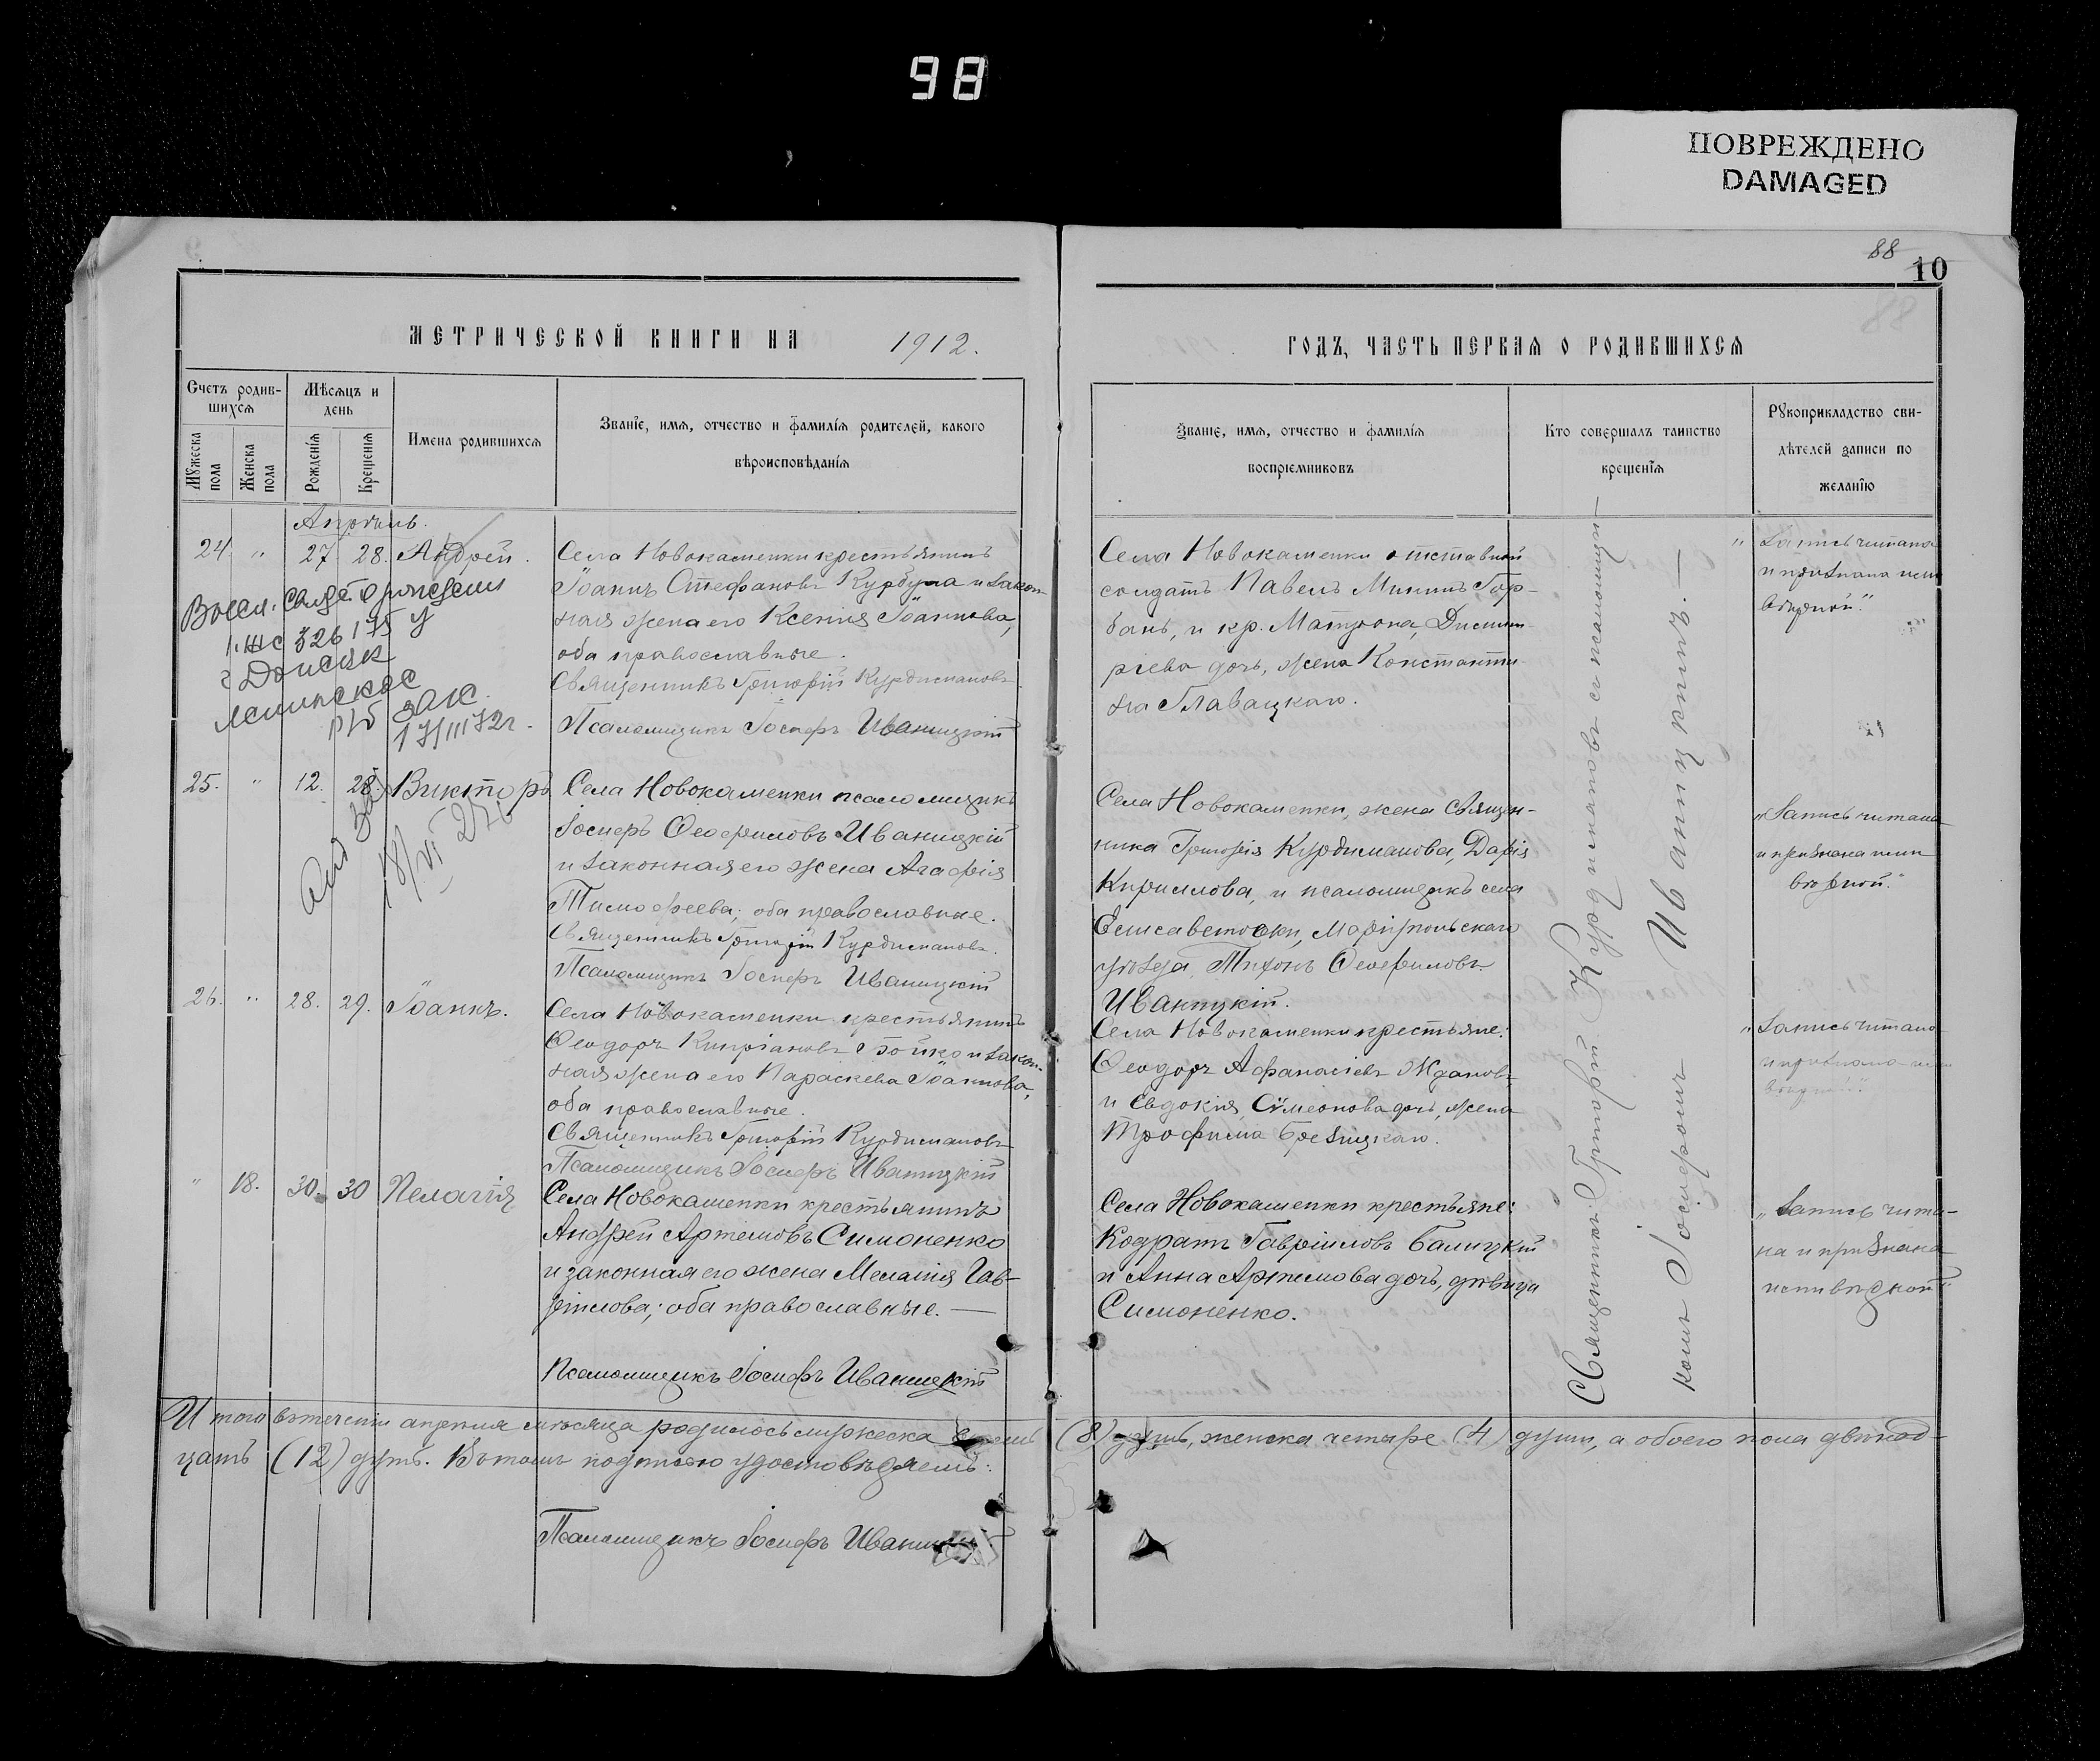 98
ПОВРЕЖДЕНО
DAMAGED
88
10
МЕТРИЧЕСКОЙ КНИГИ НА 1912.
Счетъ родив-
шихся
Мѣсяцъ и
день
Мужеска
пола
Женска
пола
Рожденія
Крещенія
Имена родившихся
Званіе, имя, отчество и фамилія родителей, какого
вѣроисповѣданія
Апрѣль.
24. " 27 28. Андрей.
Села Новокаменки крестьянинъ
Іоаннъ Стефановъ Курбула и закон-
ная жена его Ксенія Іоаннова,
оба православные.
Священникъ Григорій Курдимановъ
Псаломщикъ Іосифъ Иваницкій
1. ЖС 326175
г Донецк
Ленинское
заг
17/III 72г.
25. " 12. 28. Викторъ
Села Новокаменки псаломщикъ
Іосифъ Ѳеофиловъ Иваницкій
и законная его жена Агафія
Тимофеева; оба православные.
Священникъ Григорій Курдимановъ.
Псаломщикъ Іосифъ Иваницкій
26. " 28. 29. Іоаннъ.
Села Новокаменки крестьянинъ
Ѳеодоръ Кипріановъ Бойко и закон-
ная жена его Параскева Іоаннова,
оба православные.
Священникъ Григорій Курдимановъ
Псаломщикъ Іосифъ Иваницкій
" 18. 30. 30 Пелагія
Села Новокаменки крестьянинъ
Андрей Артемовъ Симоненко
и законная его жена Меланія Гав-
ріилова; оба православные. —
Псаломщикъ Іосифъ Иваницкій
Итого въ теченіи апрѣля мѣсяца родилось мужеска восемь (8) душъ, женска четыре (4) души, а обоего пола двѣнад-
цать (12) душъ. Въ томъ подписью удостовѣряемъ:
Псаломщикъ Іосифъ Иваницкій
ГОДЪ, ЧАСТЬ ПЕРВАЯ О РОДИВШИХСЯ
Званіе, имя, отчество и фамилія
воспріемниковъ
Кто совершалъ таинство
крещенія
Рукоприкладство сви-
дѣтелей записи по
желанію
Села Новокаменки отставной
солдатъ Павелъ Мининъ Гор-
бань, и кр. Матрона, Димит-
ріева дочь, жена Константи-
на Главацкаго.
"Запись читана
и признана нами
вѣрной".
Села Новокаменки, жена священ-
ника Григорія Курдиманова, Дарія
Кириллова, и псаломщикъ села
Елисаветовки, Маріупольскаго
уѣзда, Тихонъ Ѳеофиловъ
Иваницкій.
"Запись читана
и признана нами
вѣрной."
Села Новокаменки крестьяне:
Ѳеодоръ Афанасіевъ Ждановъ
и Евдокія, Сѵмеонова дочь, жена
Трофима Брезицкаго.
"Запись читана
и признана нами
вѣрной"
Села Новокаменки крестьяне:
Кодратъ Гавріиловъ Балицкій
и Анна Артемова дочь, дѣвица
Симоненко.
"Запись чита-
на и признана
нами вѣрной"
Священникъ Григорій Курдимановъ съ псаломщи-
комъ Іосифомъ Иваницкимъ. —